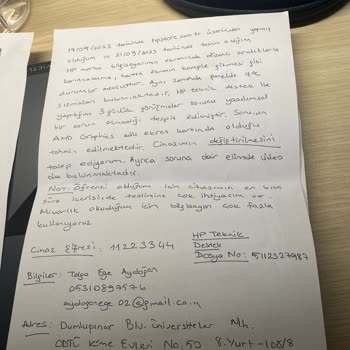 19/09/2023 tarihinde hpstore.com.tr üzerinden yapmış
olduğum ve 21/09/2023 tarihinde teslim aldığım
HP marka bilgisayarımın ekranında düzenli aralıklarla
karıncalanma, hatta ekranın komple gitmesi gibi
durumlar mevcuttur. Aynı zamanda panelde ışık
sızmaları bulunmaktadır. HP teknik destek ile
yaptığım 3 günlük görüşmeler sonucu yazılımsal
bir sorun olmadığı tespit edilmiştir. Sorunun
AMD Graphics adlı ekran kartında olduğu
tahmin edilmektedir. Cihazımın değiştirilmesini
talep ediyorum. Ayrıca soruna dair elimde video
da bulunmaktadır.
NOT: Öğrenci olduğum için cihazımın en kısa
süre içerisinde teslimine çok ihtiyacım var.
Mimarlık okuduğum için bilgisayarı çok fazla
kullanıyoruz
Cihaz Şifresi: 11223344
HP Teknik
Destek
Dosya No: 5112327987
Bilgiler: Tolga Ege Aydoğan
05310897576
aydogonege02@gmail.com
Adres: Dumlupınar Blv. Üniversiteler Mh.
ODTÜ Küme Evleri No:50 8.Yurt-108/8